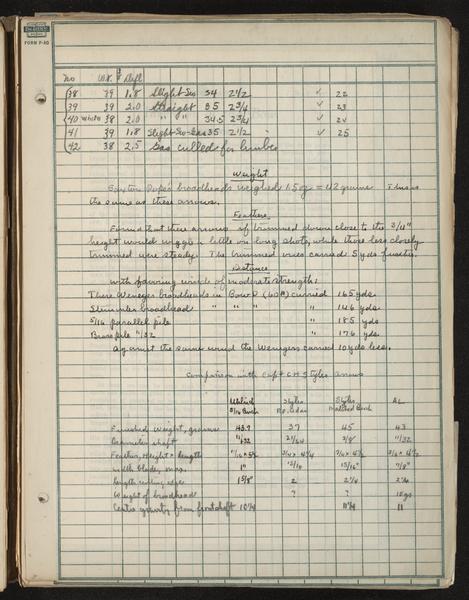 FORM P-80
No Wt. Defl
38 39 1.8 Slight-Sno 34 2 1/2 ✓ 22
39 39 2.0 Straight 35 2 3/4 ✓ 23
40 White 38 2.0 " " 34.5 2 3/4 ✓ 24
41 39 1.8 35 2 1/2 ✓ 25
42 38 2.5 culled for limber
Weight
Saxton Pope's broadheads weighed 1.5 oz = 42 grams
the same as these arrows.
Feathers
Found that these arrows if trimmed down close to the
height would wiggle a little on long shots, while those less closely
trimmed were steady. The trimmed ones carried 5 yds further.
Distance
with favoring wind of moderate strength:
These Wenegers broadheads in Bow P (60#) carried 165 yds.
Slummer broadhead " " " " 146 yds
5/16 parallel pile " 185 yds
Brass pile 11/32 " 176 yds
Against the same wind the Wenegers carried 10 yds less.
Comparison with Capt CH Styles arrows
Styles Styles AL
5/16 Birch P.O. cedar Birch
Finished Weight, grams 43.7 37 45 43
Diameter shaft 11/32 21/64 3/8" 11/32
Feather, Height & length
width blade, max. 1" 13/16 15/16" 7/8"
length cutting edge 1 5/8" 2 2 1/4
Weight of broadhead ? ?
Center gravity from front shaft 10 1/4 11 1/4 11